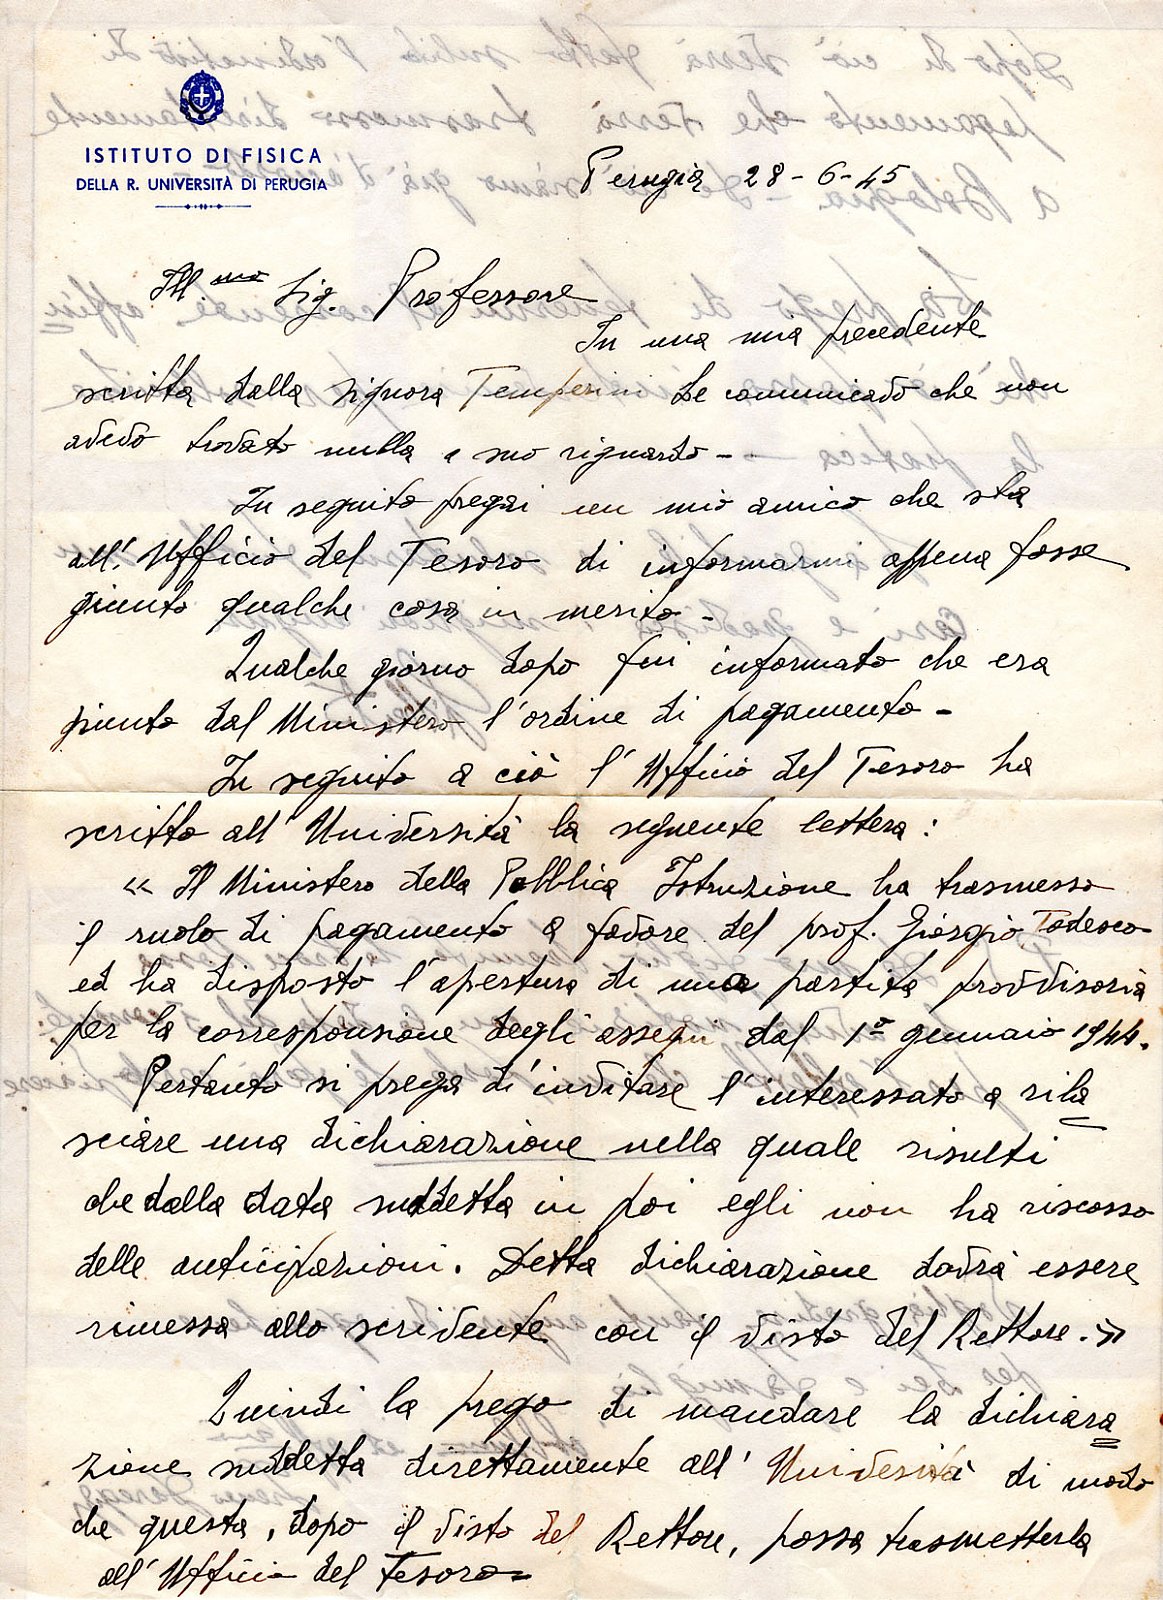 ISTITUTO DI FISICA
DELLA R. UNIVERSITÀ DI PERUGIA
Perugia 28-6-45
Ill.mo Sig. Professore
In una mia precedente
scritta dalla signora Temperini Le comunicavo che non
avevo trovato nulla a suo riguardo -
In seguito pregai un mio amico che sta
all'Ufficio del Tesoro di informarmi appena fosse
giunto qualche cosa in merito -
Qualche giorno dopo fui informato che era
giunto dal Ministero l'ordine di pagamento -
In seguito a ciò l'Ufficio del Tesoro ha
scritto all'Università la seguente lettera:
« Il Ministero della Pubblica Istruzione ha trasmesso
il ruolo di pagamento a favore del prof. Giorgio Todesco
ed ha disposto l'apertura di una partita provvisoria
per la corresponsione degli assegni dal 1º gennaio 1944.
Pertanto si prega d'invitare l'interessato a rila
sciare una dichiarazione nella quale risulti
che dalla data suddetta in poi egli non ha riscosso
delle anticipazioni. Detta dichiarazione dovrà essere
rimessa allo scrivente con il visto del Rettore.»
Quindi la prego di mandare la dichiara
zione suddetta direttamente all'Università di modo
che questa, dopo il visto del Rettore, possa trasmetterla
all'Ufficio del Tesoro=